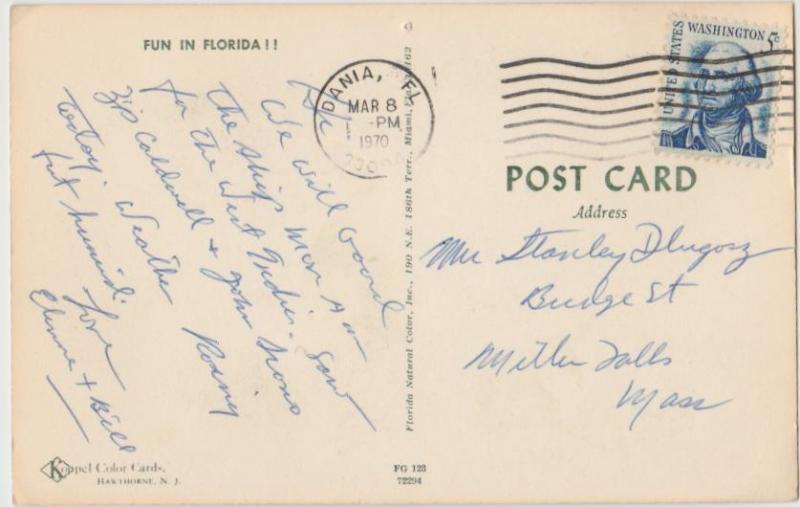 FUN IN FLORIDA!!
Hi –
We will board
the ships Mon A m
for the West Indies. Saw
Zip Caldwell + John
today. Weather Rainy
but humid.
Love
+ Bill
Koppel Color Cards,
HAWTHORNE, N. J.
Florida Natural Color, Inc., 190 N.E. 186th Terr., Miami, Fla. 33162
FG 123
72294
DANIA, FL
MAR 8
-PM
1970
UNITED STATES
WASHINGTON 5c
POST CARD
Address
Mr Stanley Dlugosz
Bridge St
Miller Falls
Mass